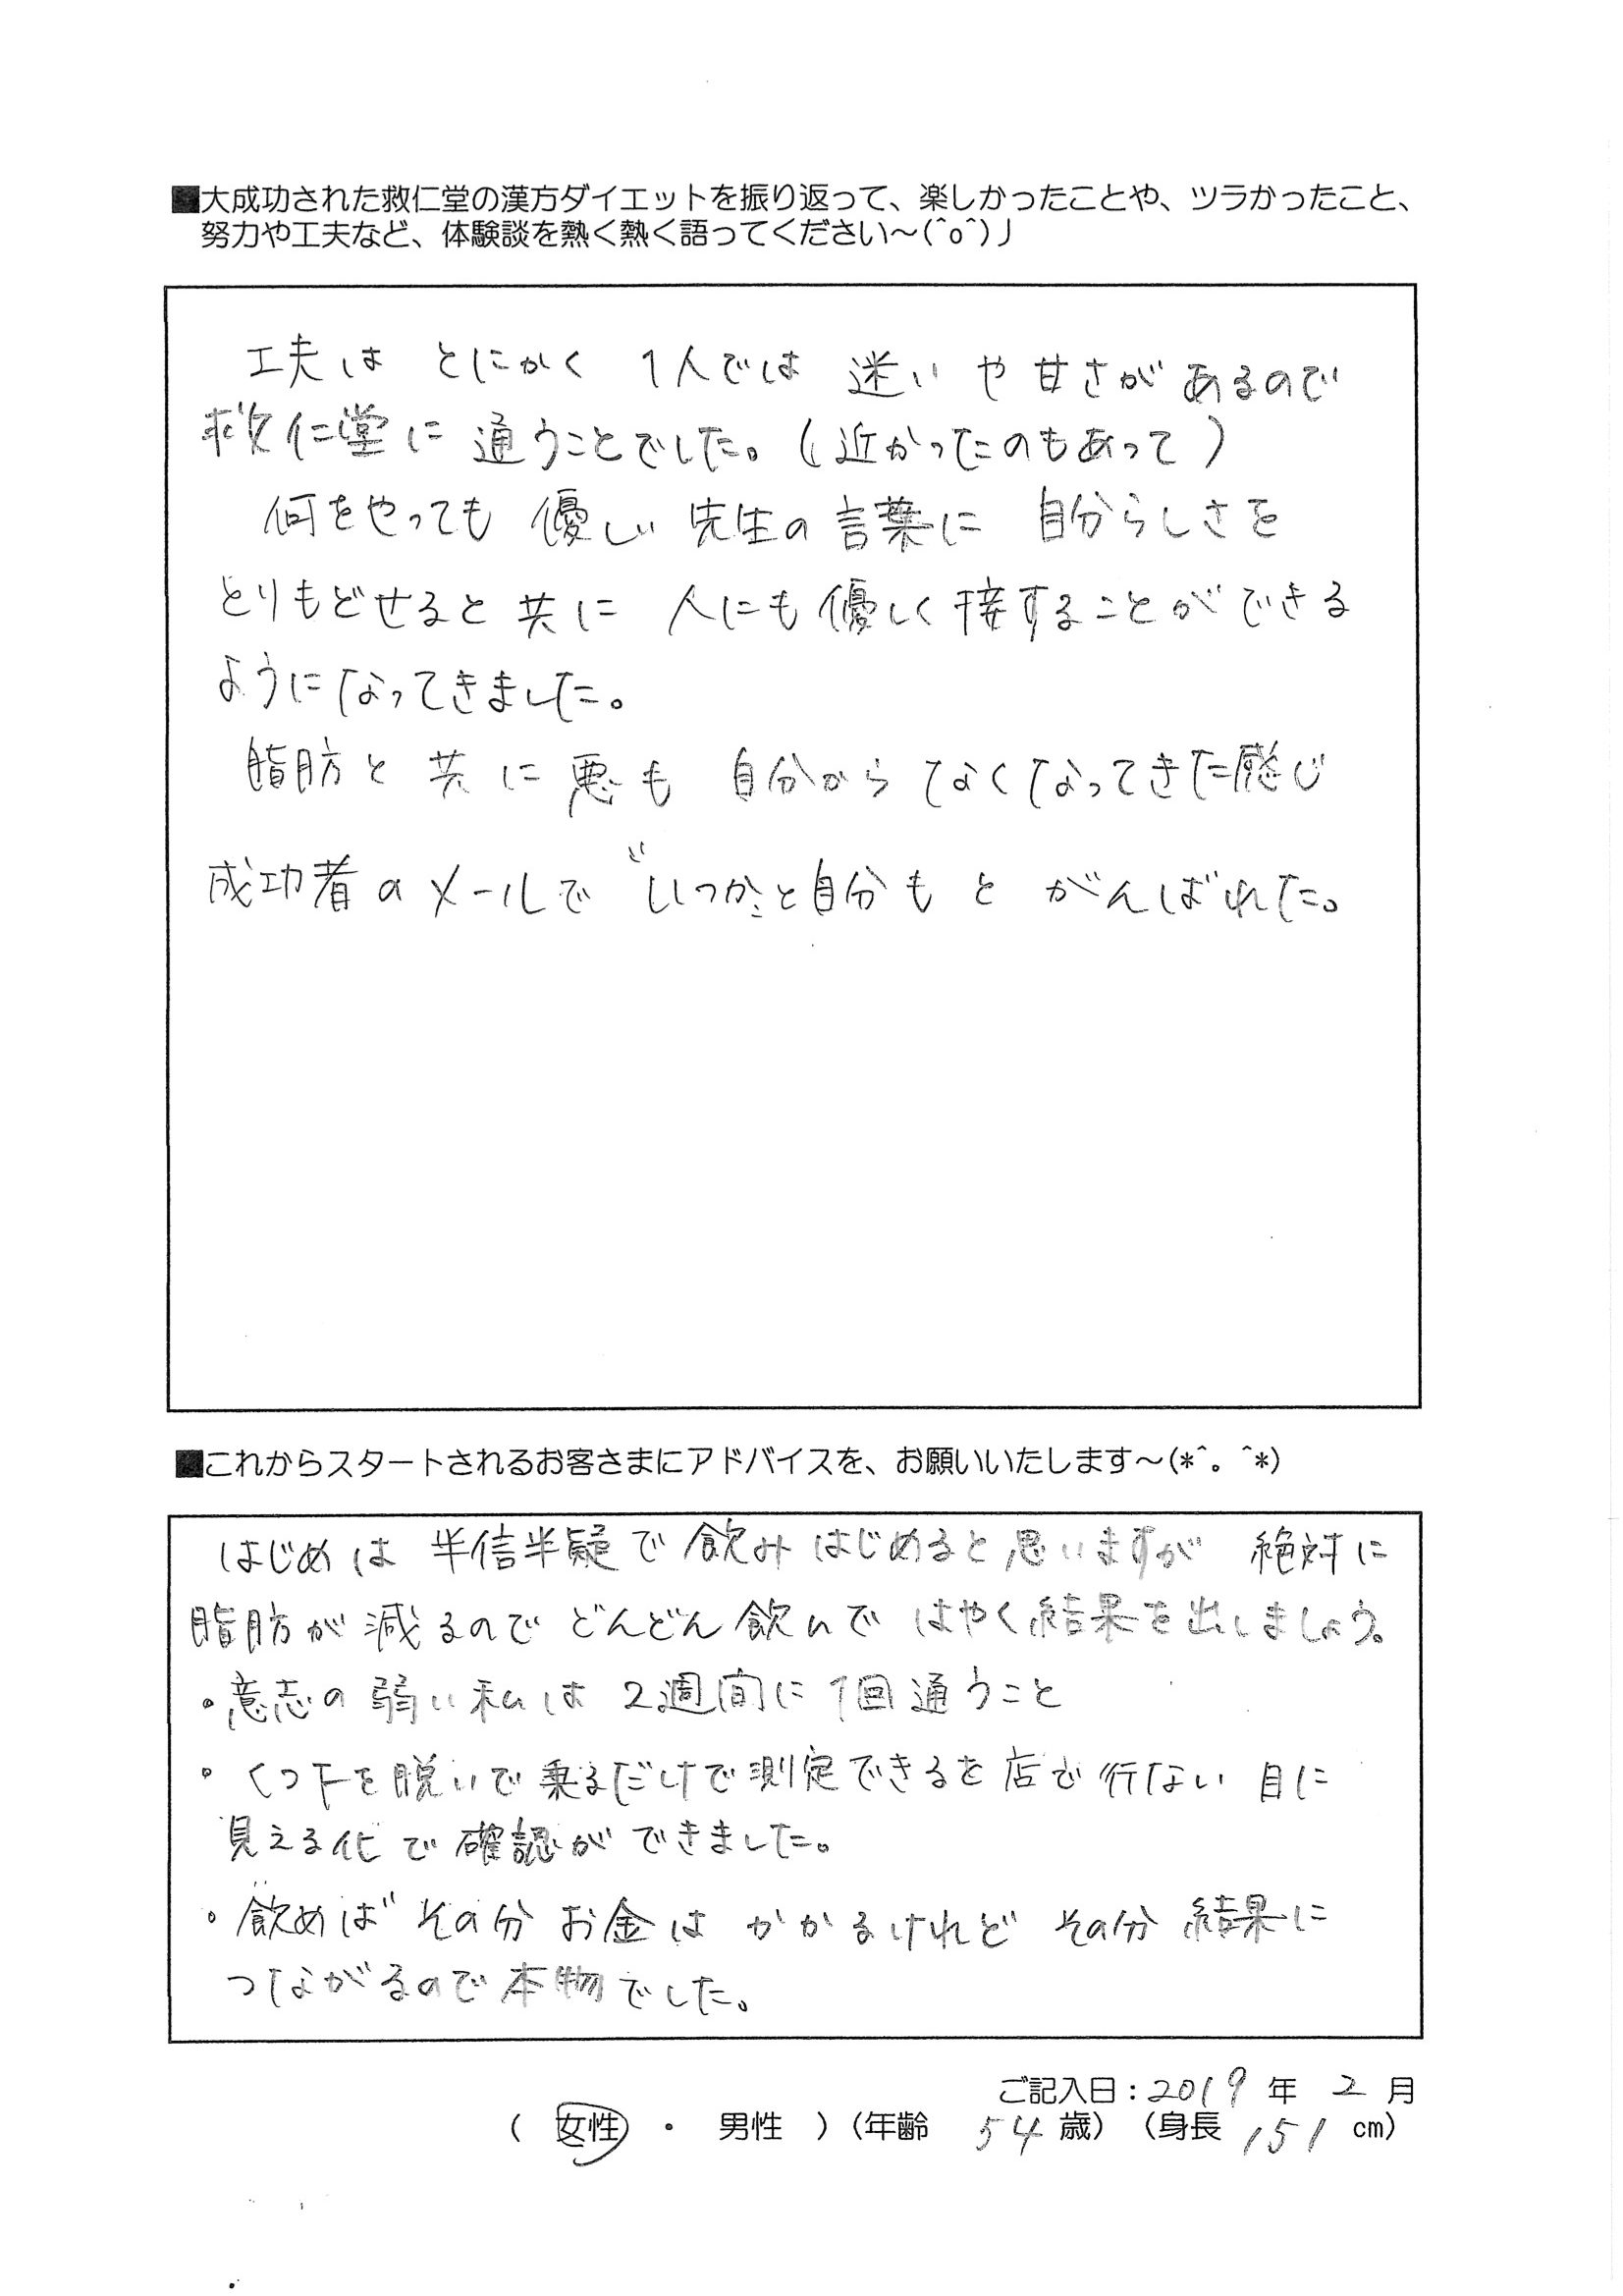 ■大成功された救仁堂の漢方ダイエットを振り返って、楽しかったことや、ツラかったこと、
努力や工夫など、体験談を熱く熱く語ってください～(^o^)丿
工夫は とにかく 1人では 迷いや甘さがあるので
救仁堂に 通うことでした。(近かったのもあって)
何をやっても 優しい 先生の言葉に 自分らしさを
とりもどせると共に 人にも優しく接することができる
ようになってきました。
脂肪と共に悪も 自分から なくなってきた感じ
成功者のメールで〝いつか〟と自分も と がんばれた。
■これからスタートされるお客さまにアドバイスを、お願いいたします～(*^。^*)
はじめは 半信半疑で飲みはじめると思いますが 絶対に
脂肪が減るので どんどん飲んで はやく結果を出しましょう。
・意志の弱い私は 2週間に1回通うこと
・くつ下を脱いで乗るだけで測定できるを店で行ない 目に
見える化で確認ができました。
・飲めばその分お金は かかるけれど その分 結果に
つながるので本物でした。
ご記入日：2019年 2月
( 女性 ・ 男性 ) (年齢 54歳) (身長 151 cm)